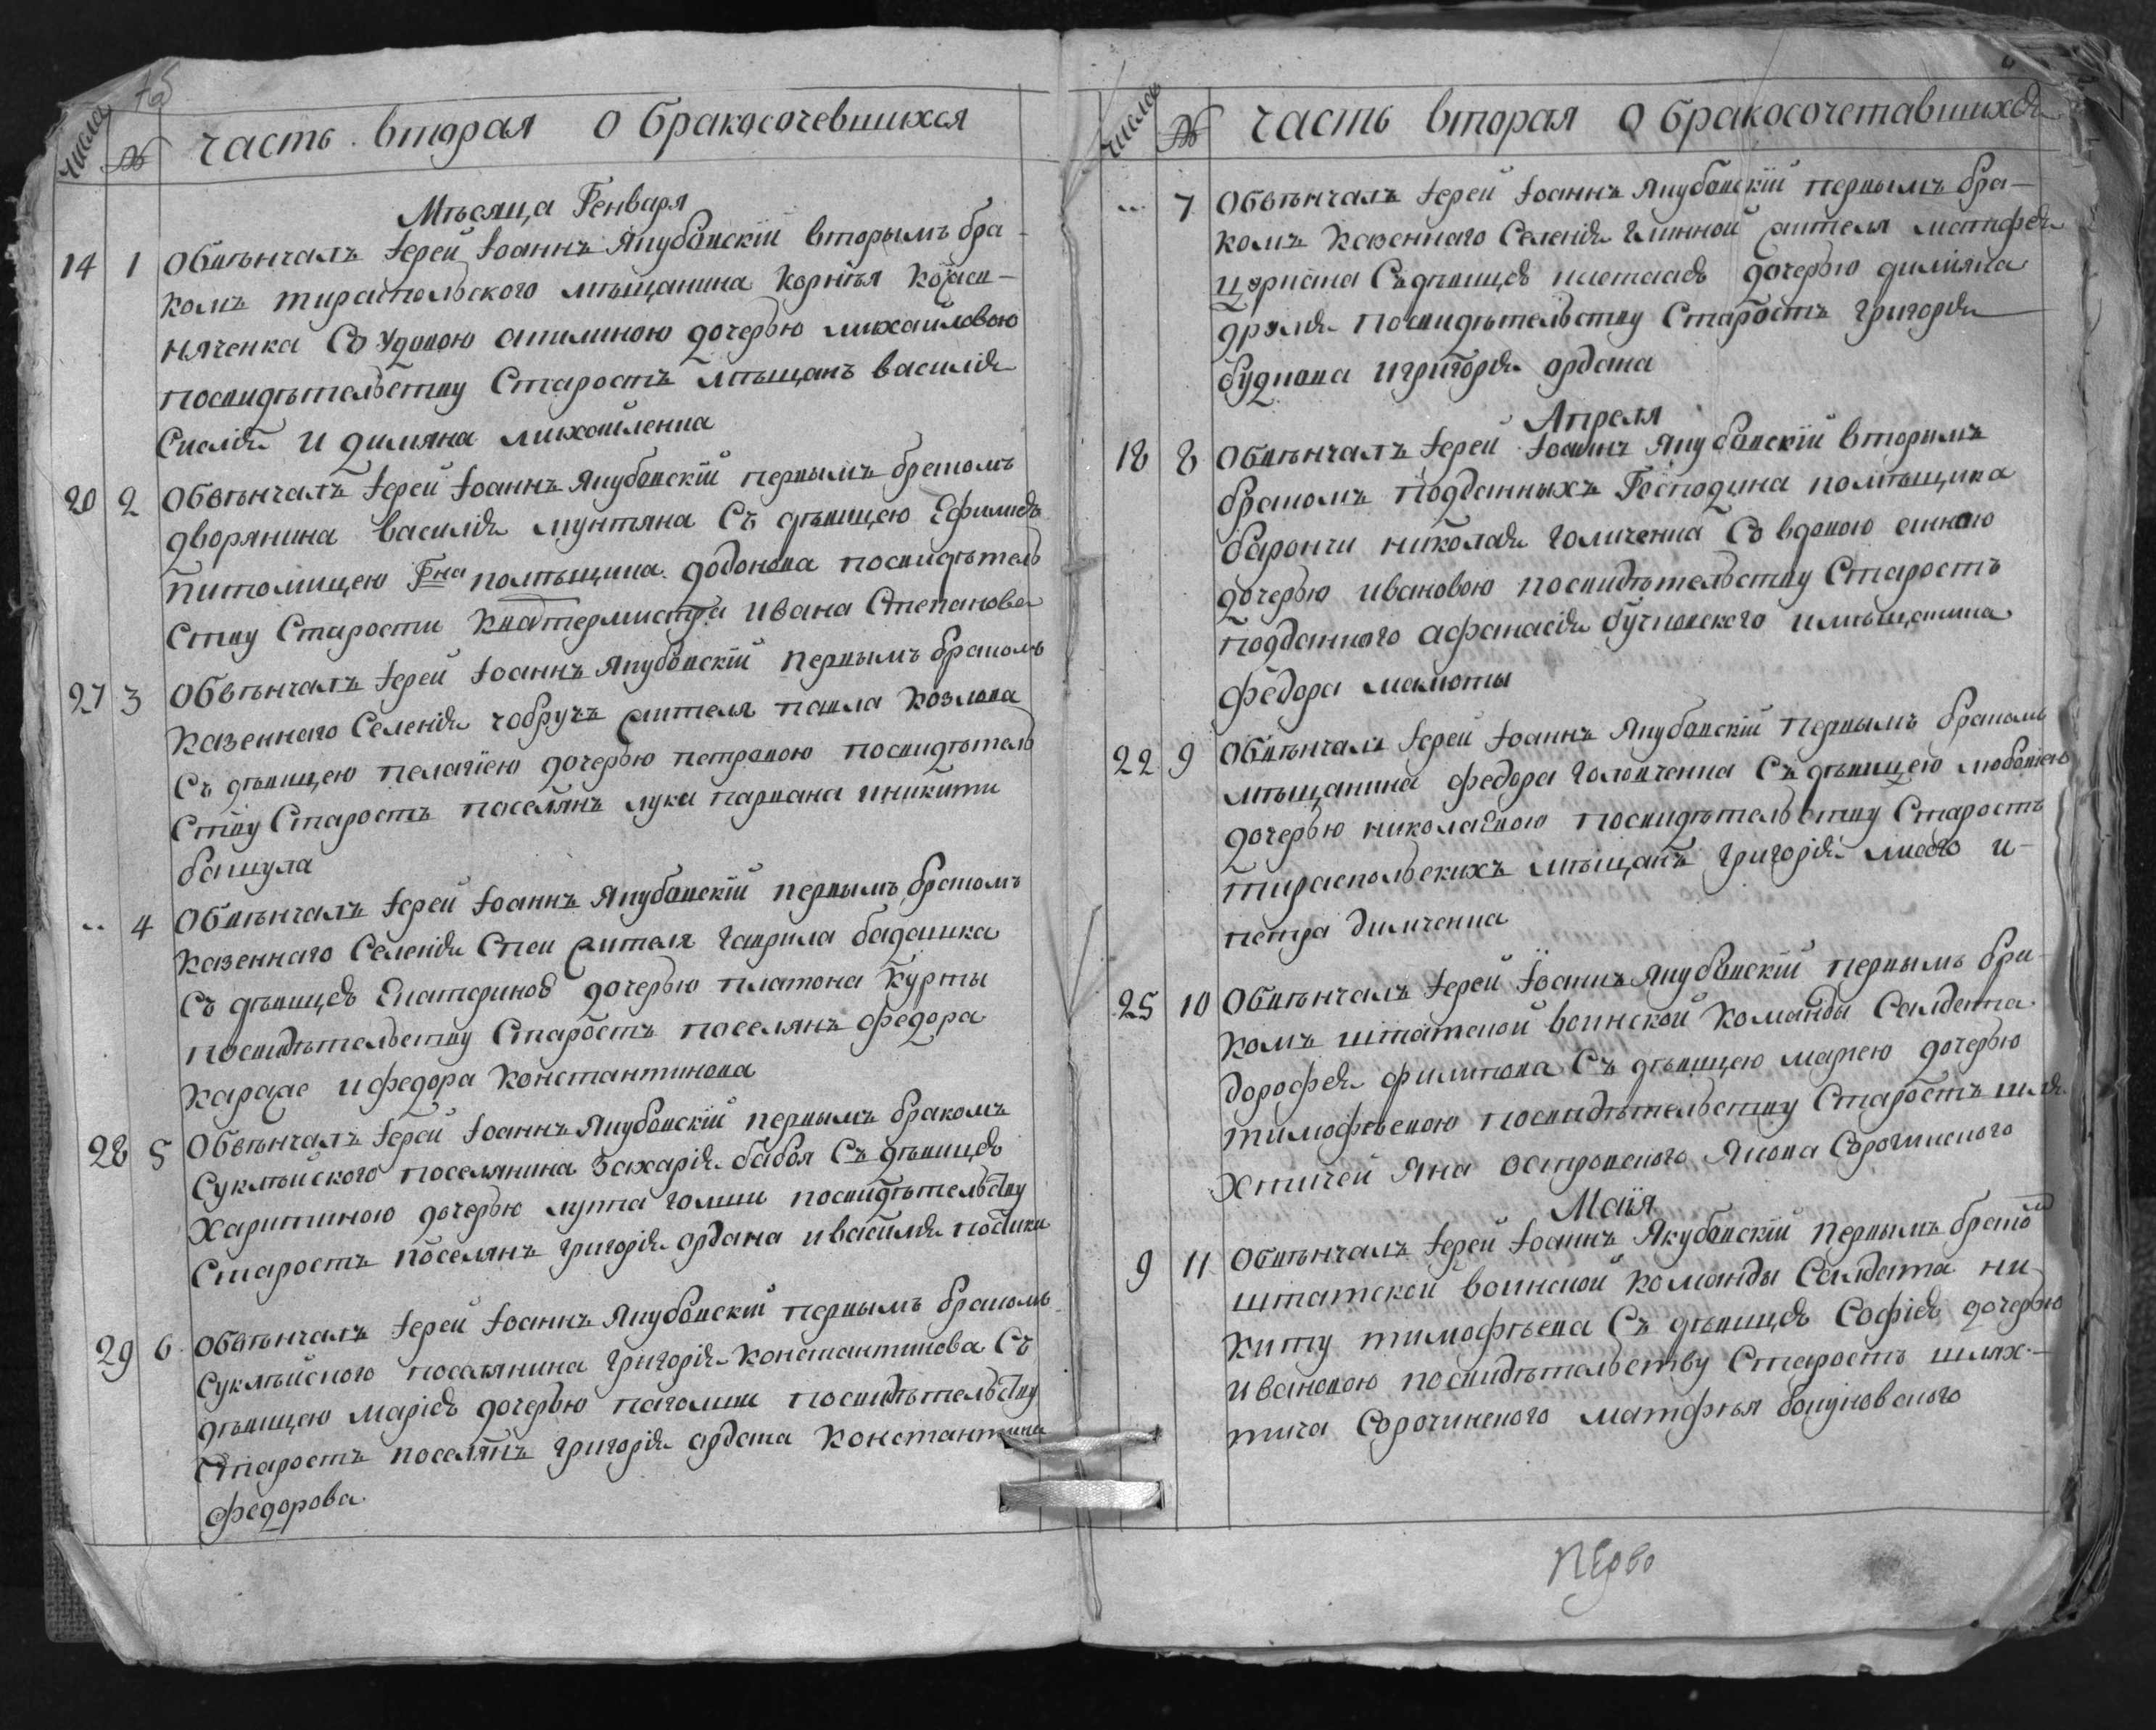 Числа № часть вторая о бракосочевшихся
Мѣсяца Генваря
14 1 Обвѣнчалъ Іерей Іоаннъ Якубовскїй вторымъ бра-
комъ тираспольского мѣщанина Корнѣя
няченка Со удовою акилиною дочерью михайловою
посвидѣтельству Старостъ мѣщанъ василія
и димяна михайленка
20 2 Обвѣнчалъ Іерей Іоаннъ Якубовскїй первымъ бракомъ
дворянина василія мунтяна Съ дѣвицею
питомицею Гна помѣщика посвидѣтель
ству Старости Кватермистра ивана Степанова
27 3 Обвѣнчалъ Іерей Іоаннъ Якубовскїй первымъ бракомъ
Казеннаго Селенія чобручъ жителя павла Козлова
Съ дѣвицею пелагїею дочерью петровою посвидѣтель
ству Старостъ поселянъ луки иникити
4 Обвѣнчалъ Іерей Іоаннъ Якубовскїй первымъ бракомъ
Казеннаго Селенія жителя гаврила
Съ дѣвицею Екатериною дочерью платона Курты
посвидѣтельству Старостъ поселянъ федора
и федора Константинова
28 5 Обвѣнчалъ Іерей Іоаннъ Якубовскїй первымъ бракомъ
Суклѣйского поселянина Захарія бабоя Съ дѣвицею
Харитиною дочерью посвидѣтельству
Старостъ поселянъ григорія ордана ивасилія
29 6 Обвѣнчалъ Іерей Іоаннъ Якубовскїй первымъ бракомъ
Суклѣйского поселянина григорія Константинова Съ
дѣвицею Марїею дочерью посвидѣтельству
Старостъ поселянъ григорія ордана Константина
федорова
Числа № часть вторая о бракосочетавшихся
7 Обвѣнчалъ Іерей Іоаннъ Якубовскїй первымъ бра-
комъ Казеннаго Селенія глинной жителя матфея
Съдѣвицею дочерью димїяна
посвидѣтельству Старостъ григорія
игригорія ордана
Апреля
18 8 Обвѣнчалъ Іерей Іоаннъ Якубовскїй вторымъ
бракомъ подданныхъ Господина помѣщика
николая Со вдовою
дочерью ивановою посвидѣтельству Старостъ
подданного афанасія имѣщанина
федора
22 9 Обвѣнчалъ Іерей Іоаннъ Якубовскїй первымъ бракомъ
мѣщанина федора Съ дѣвицею
дочерью николаевою посвидѣтельству Старостъ
тираспольскихъ мѣщанъ григорія лисого и
петра
25 10 Обвѣнчалъ Іерей Іоаннъ Якубовскїй первымъ бра-
комъ штатской воинской Команды Салдата
дорофея филипова Съ дѣвицею марїею дочерью
тимофѣевою посвидѣтельству Старостъ шля-
хтичей яна островского Якова Сорочинского
Маїя
9 11 Обвѣнчалъ Іерей Іоаннъ Якубовскїй первымъ брако
штатской воинской Команды Салдата ни-
киту тимофѣева Съ дѣвицею Софїею дочерью
ивановою посвидѣтельству Старостъ шлях-
тича Сорочинского матфѣя